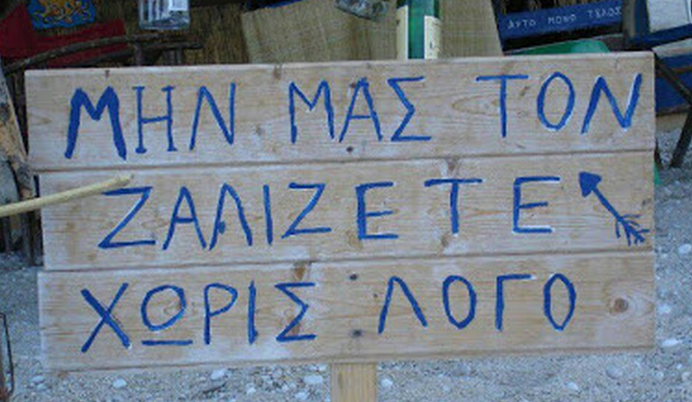 ΑΥΤΟ ΜΟΝΟ ΤΕΛΟΣ
ΜΗΝ ΜΑΣ ΤΟΝ
ΖΑΛΙΖΕΤΕ
ΧΩΡΙΣ ΛΟΓΟ